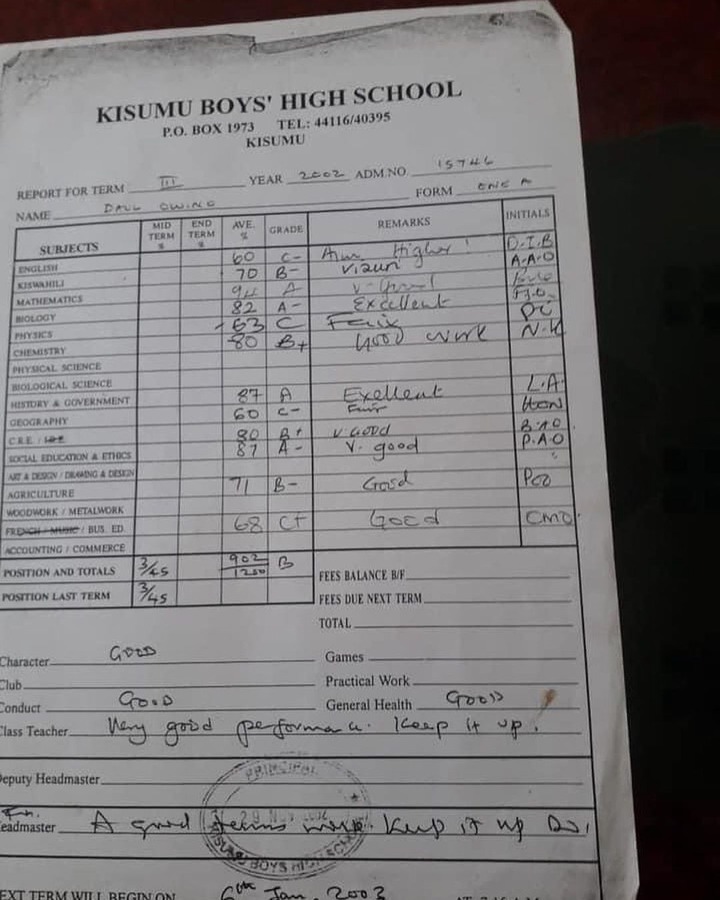 KISUMU BOYS' HIGH SCHOOL
P.O. BOX 1973 TEL: 44116/40395
KISUMU
REPORT FOR TERM III YEAR 2002 ADM.NO. 15746
NAME OWINO FORM ONE A
SUBJECTS MID TERM % END TERM % AVE. % GRADE REMARKS INITIALS
ENGLISH 60 C- Aim Higher! D.I.B
KISWAHILI 70 B- Vizuri A.A.O
MATHEMATICS 94 A V. Good
BIOLOGY 82 A- Excellent
PHYSICS 63 C Fair
CHEMISTRY 80 B+ Good work N.K
PHYSICAL SCIENCE
BIOLOGICAL SCIENCE
HISTORY & GOVERNMENT 87 A Exellent L.A.
GEOGRAPHY 60 C- Fair
C.R.E. / 80 B+ V. Good
SOCIAL EDUCATION & ETHICS 87 A- V. good P.A.O
ART & DESIGN / DRAWING & DESIGN
AGRICULTURE 71 B- Good
WOODWORK / METALWORK
FRENCH / MUSIC / BUS. ED. 68 C+ Good CMO
ACCOUNTING / COMMERCE
POSITION AND TOTALS 3/45 902/1200 B FEES BALANCE B/F
POSITION LAST TERM 3/45 FEES DUE NEXT TERM
TOTAL
Character GOOD Games
Club Practical Work
Conduct GOOD General Health GOOD
Class Teacher Very good performance. Keep it up.
Deputy Headmaster
PRINCIPAL
29 NOV 2002
eadmaster A good Keep it up
KISUMU BOYS HIGH SCHOOL
EXT TERM WILL BEGIN ON 6th Jan, 2003